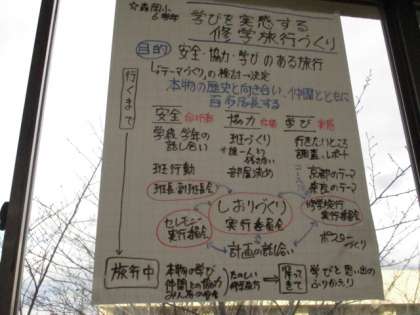 ☆森岡小
6学年
学びを実感する
修学旅行づくり
目的
安全・協力・学びのある旅行
「テーマづくり」の検討→決定
本物の歴史と向き合い、仲間とともに
成長する
行くまで
安全
協力
学び
学校、学年の
話し合い
班づくり
行きたいところ
調査レポート
班行動
部屋決め
京都のテーマ
奈良のテーマ
班長 副班長会
しおりづくり
実行委員会
セレモニー
実行委員会
修学旅行
実行委員会
計画の話し合い
ポスター
づくり
旅行中
本物の学び
仲間との協力
たのしい
修学旅行
帰って
きて
学びと思い出の
ふりかえり